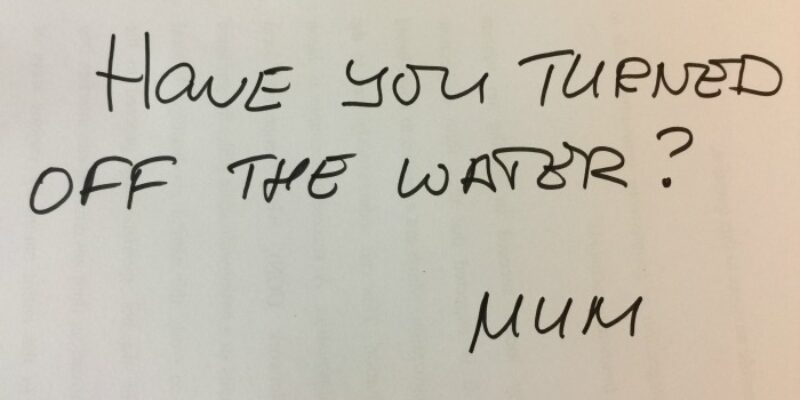 Have you TURNED
OFF THE WATER?
MUM